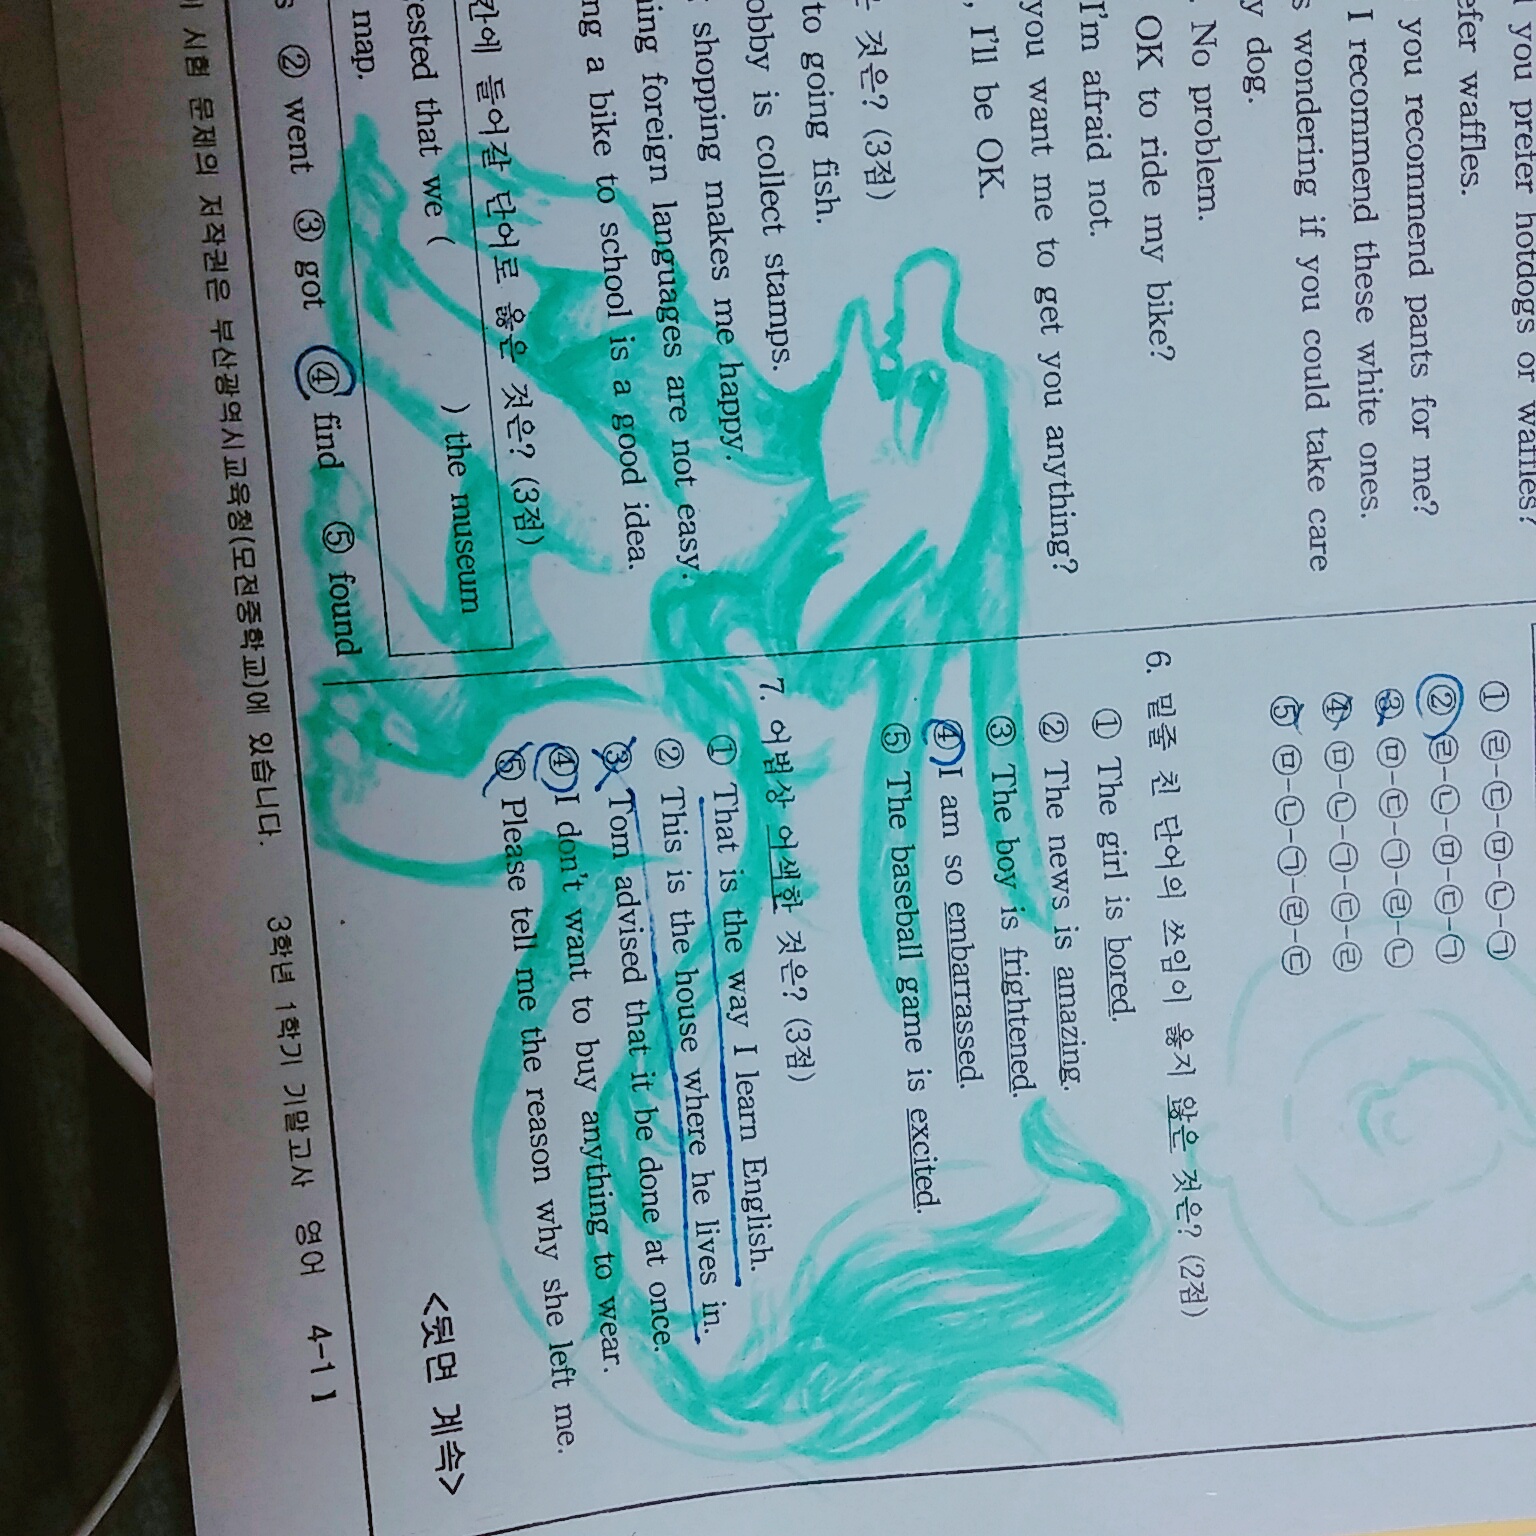 you prefer hotdogs or waffles?
efer waffles.
you recommend pants for me?
I recommend these white ones.
s wondering if you could take care
y dog.
No problem.
OK to ride my bike?
I'm afraid not.
you want me to get you anything?
, I'll be OK.
것은? (3점)
to going fish.
obby is collect stamps.
shopping makes me happy.
ning foreign languages are not easy.
ng a bike to school is a good idea.
칸에 들어갈 단어로 옳은 것은? (3점)
ested that we ( ) the museum
map.
s ② went ③ got ④ find ⑤ found
① ㉣-㉢-㉤-㉡-㉠
② ㉣-㉡-㉤-㉢-㉠
③ ㉤-㉢-㉠-㉣-㉡
④ ㉤-㉡-㉠-㉢-㉣
⑤ ㉤-㉡-㉠-㉣-㉢
6. 밑줄 친 단어의 쓰임이 옳지 않은 것은? (2점)
① The girl is bored.
② The news is amazing.
③ The boy is frightened.
④ I am so embarrassed.
⑤ The baseball game is excited.
7. 어법상 어색한 것은? (3점)
① That is the way I learn English.
② This is the house where he lives in.
③ Tom advised that it be done at once.
④ I don't want to buy anything to wear.
⑤ Please tell me the reason why she left me.
<뒷면 계속>
시험 문제의 저작권은 부산광역시교육청(모전중학교)에 있습니다. 3학년 1학기 기말고사 영어 4-1